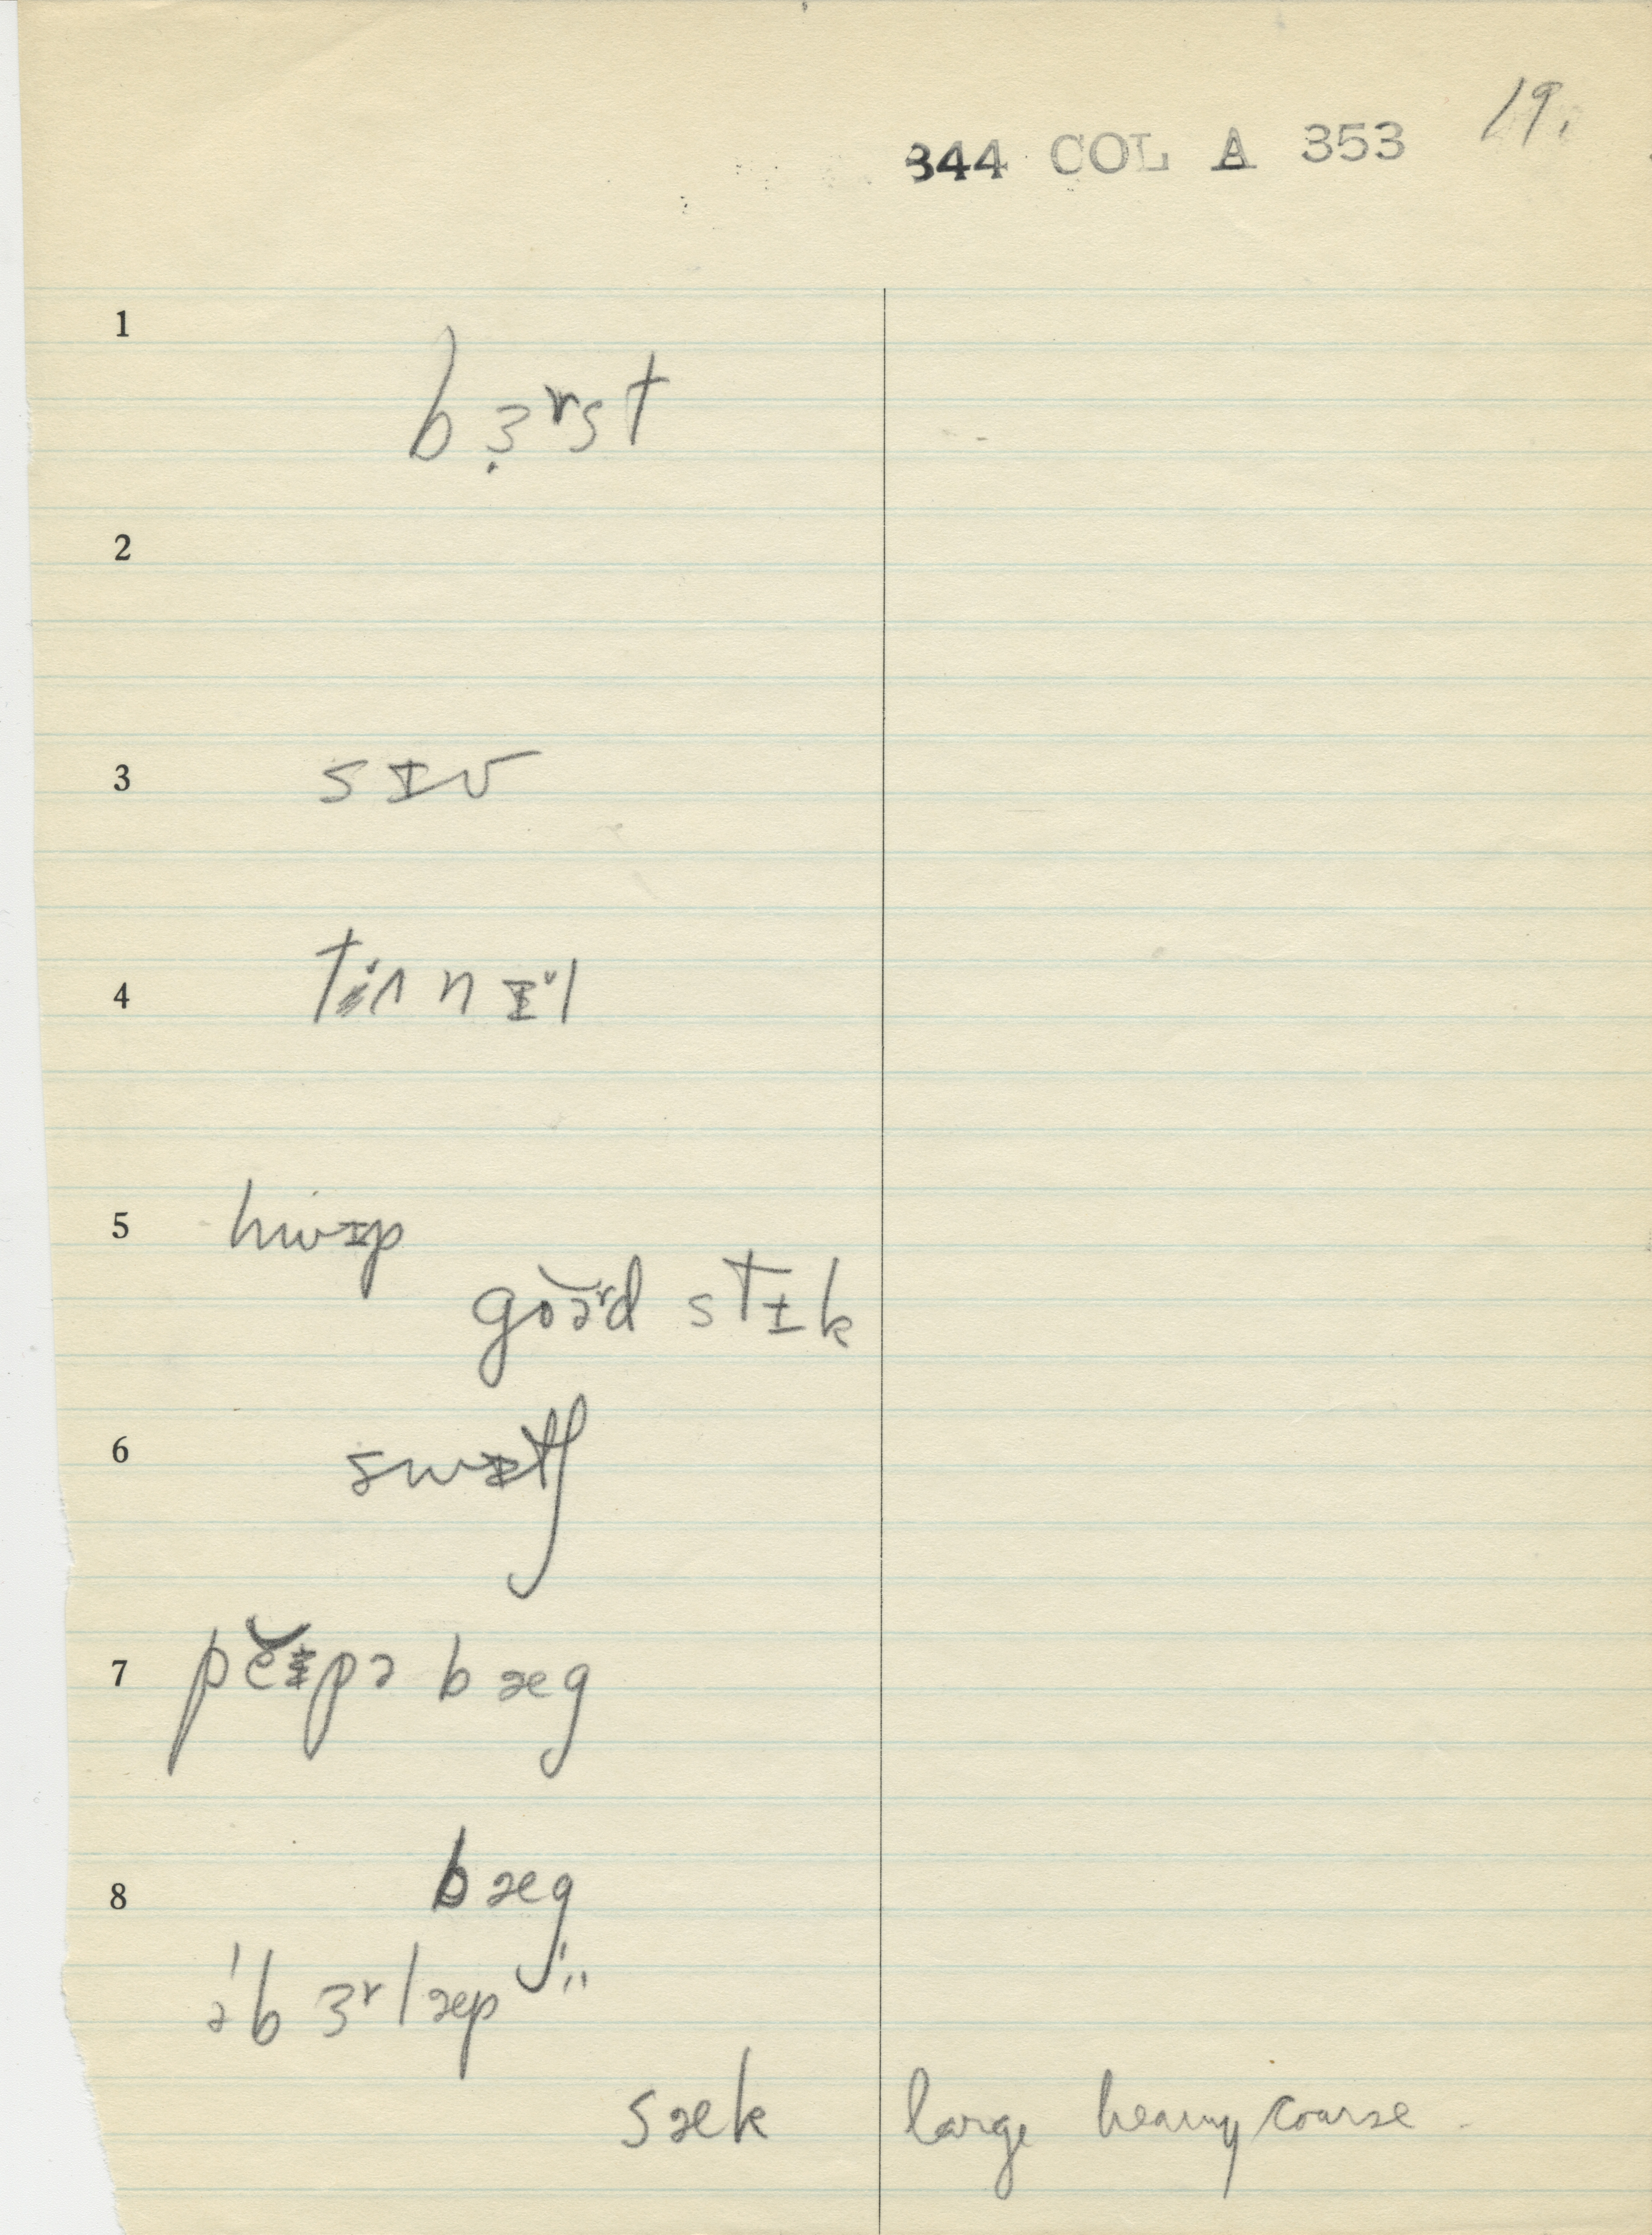 19.
344 COL A 353
1
bɜ̣ʳst
2
3
sɪv
4
tʌnnɪ̆l
5
hwɪp
goə̆ʳd stɪk
6
swɪtʃ
7
pĕɪpə bæg
8
bæg
ə'bɜʳlæp
sæk large heavy coarse